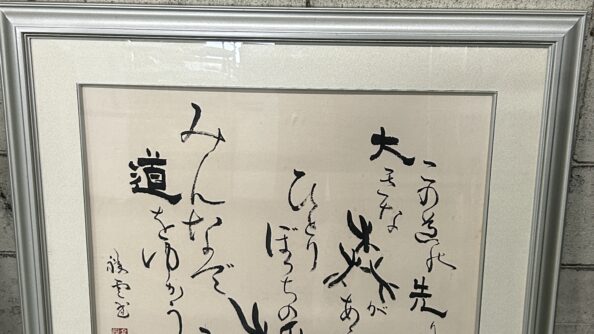 この道の先
大きな森があ
ひとりぼっちの
みんなで
道をゆかう